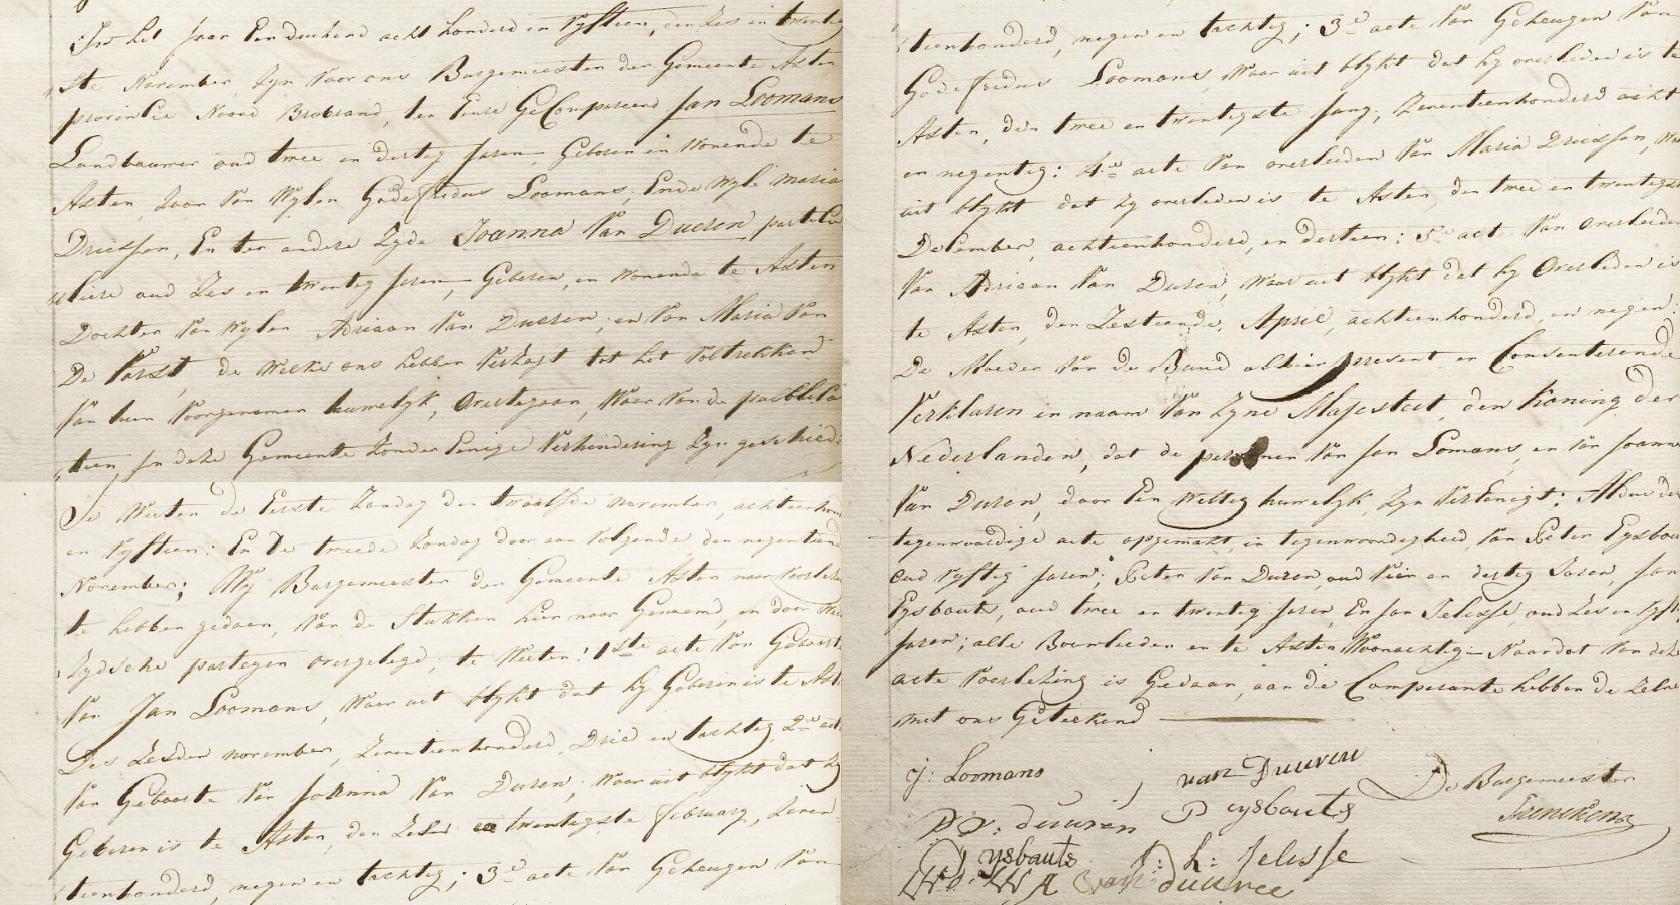 In het Jaar Een duÿsend acht honderd en vyftien, den Zes en twintig
ste November, Zyn voor ons Burgemeester der Gemeente Asten
provintie Noord Brabrand, ten Eenre GeCompareerd Jan Loomans
Landbouwer oud twee en dertig Jaren, Geboren en Wonende te
Asten, Zoon van Wylen Godefridus Loomans, Ende Wyle Maria
Driessen, En ten andere Zyde Joanna van Dueren particu
liere oud Zes en twintig Jaren, Geboren, en Wonende te Asten
Dochter van Wylen Adriaan van Dueren; en van Maria van
De Vorst, de Welke ons hebben verzogt tot het voltrekken
van hun voorgenomen huwelyk, Overtegaan, Waar van de publica
tien, In deze Gemeente Zonder Eenige Verhindering Zyn geschied:
Te Weeten de Eerste Zondag den twaalfde november, achtienhon
en vyftien: En De tweede Zondag daar aan volgende den negentiend
November; Wy Burgemeester der Gemeente Asten naar voorlez
te hebben gedaan, van de Stukken hier naar Genoemd, en door Wed
zydsche partyen overgelegd; te Weeten: 1ste acte van Geboort
van Jan Loomans, Waar uit blykt dat hy Geboren is te Ast
Des Zesden november, Zeventienhonderd, Drie en tachtig, 2de act
van Geboorte van Johanna van Duren, Waar uit blykt dat Zy
Geboren is te Asten, den Zes en twentigste february, Zeven
tienhonderd, negen en tachtig; 3de acte van Geheugen van
tienhonderd, negen en tachtig; 3de acte van Geheugen van
Godefridus Loomans, Waar uit blykt dat hy overleden is te
Asten, den twee en twentigste Juny, Zeventienhonderd acht
en negentig: 4de acte van overleiden van Maria Driessen, Waar
uit blykt dat Zy overleden is te Asten, den twee en twentigst
December, achtienhonderd, en dertien; 5de act van overleiden
van Adriaan van Duren, Waar uit blykt dat hy Overleden is
te Asten, den Zestiende, April, achtienhonderd, en negen:
De Moeder van de Bruid alhier present en Consenterende
Verklaren in naam van Zyne Majesteit, den Koning der
Nederlanden, dat de personen van Jan Lomans, en van Joanna
van Duren, door Een Wettig huwelyk, Zyn Vereenigt; Aldus de
tegenwoordige acte opgemakt, in tegenwoordigheid, van Peter Eysbou
oud vyftig Jaren; Peter van Duren, oud vier en dertig Jaren, Jan
Eysbouts, oud twee en twentig Jaren, En Jan Jelisse, oud Zes en vyft
Jaren; alle Bouwlieden en te Asten Woonachtig Naardat van deze
acte voorlezing is Gedaan, aan de Comparante hebben de Zelve
met ons Geteekend
J: Loomans van Duuren De Burgemeester
P V: duuren P eysbouts
J ysbauts J: h: Jelisse
van duuree